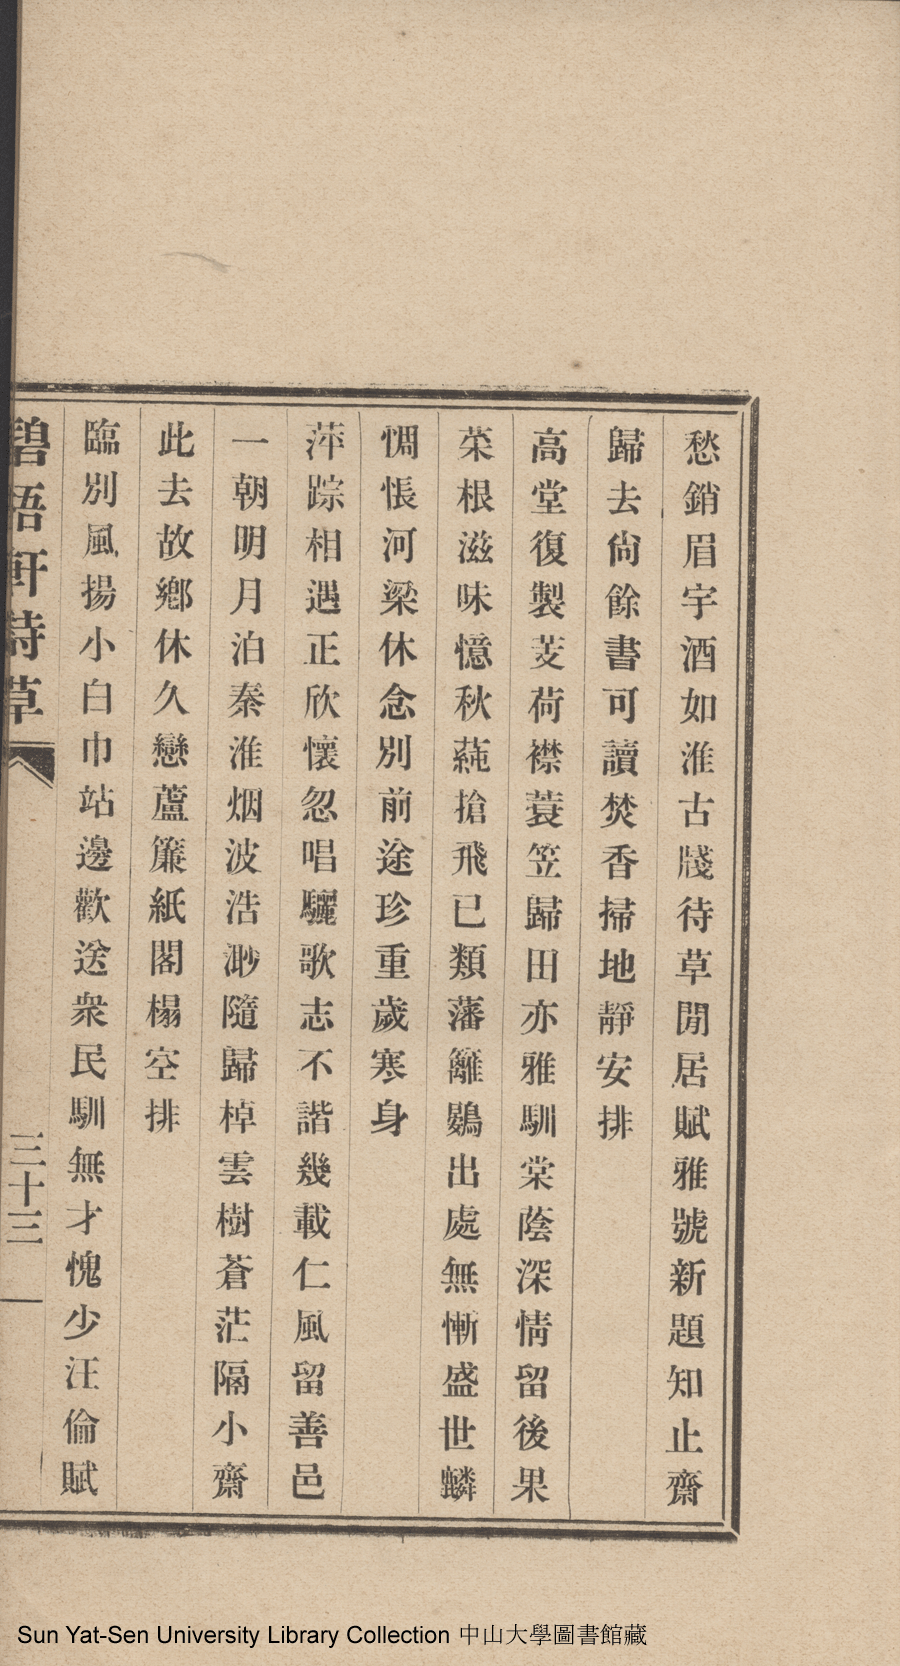 愁銷眉宇酒如淮古牋待草閒居賦雅號新題知止齋
歸去尙餘書可讀焚香掃地靜安排
高堂復製芰荷襟蓑笠歸田亦雅馴棠蔭深情留後果
菜根滋味憶秋蒓搶飛已類藩籬鷃出處無慚盛世麟
惆悵河梁休念別前途珍重歲寒身
萍踪相遇正欣懷忽唱驪歌志不諧幾載仁風留善邑
一朝明月泊秦淮烟波浩渺隨歸棹雲樹蒼茫隔小齋
此去故鄉休久戀蘆簾紙閣榻空排
臨別風揚小白巾站邊歡送衆民馴無才愧少汪倫賦
碧梧軒詩草
三十三
Sun Yat-Sen University Library Collection 中山大學圖書館藏